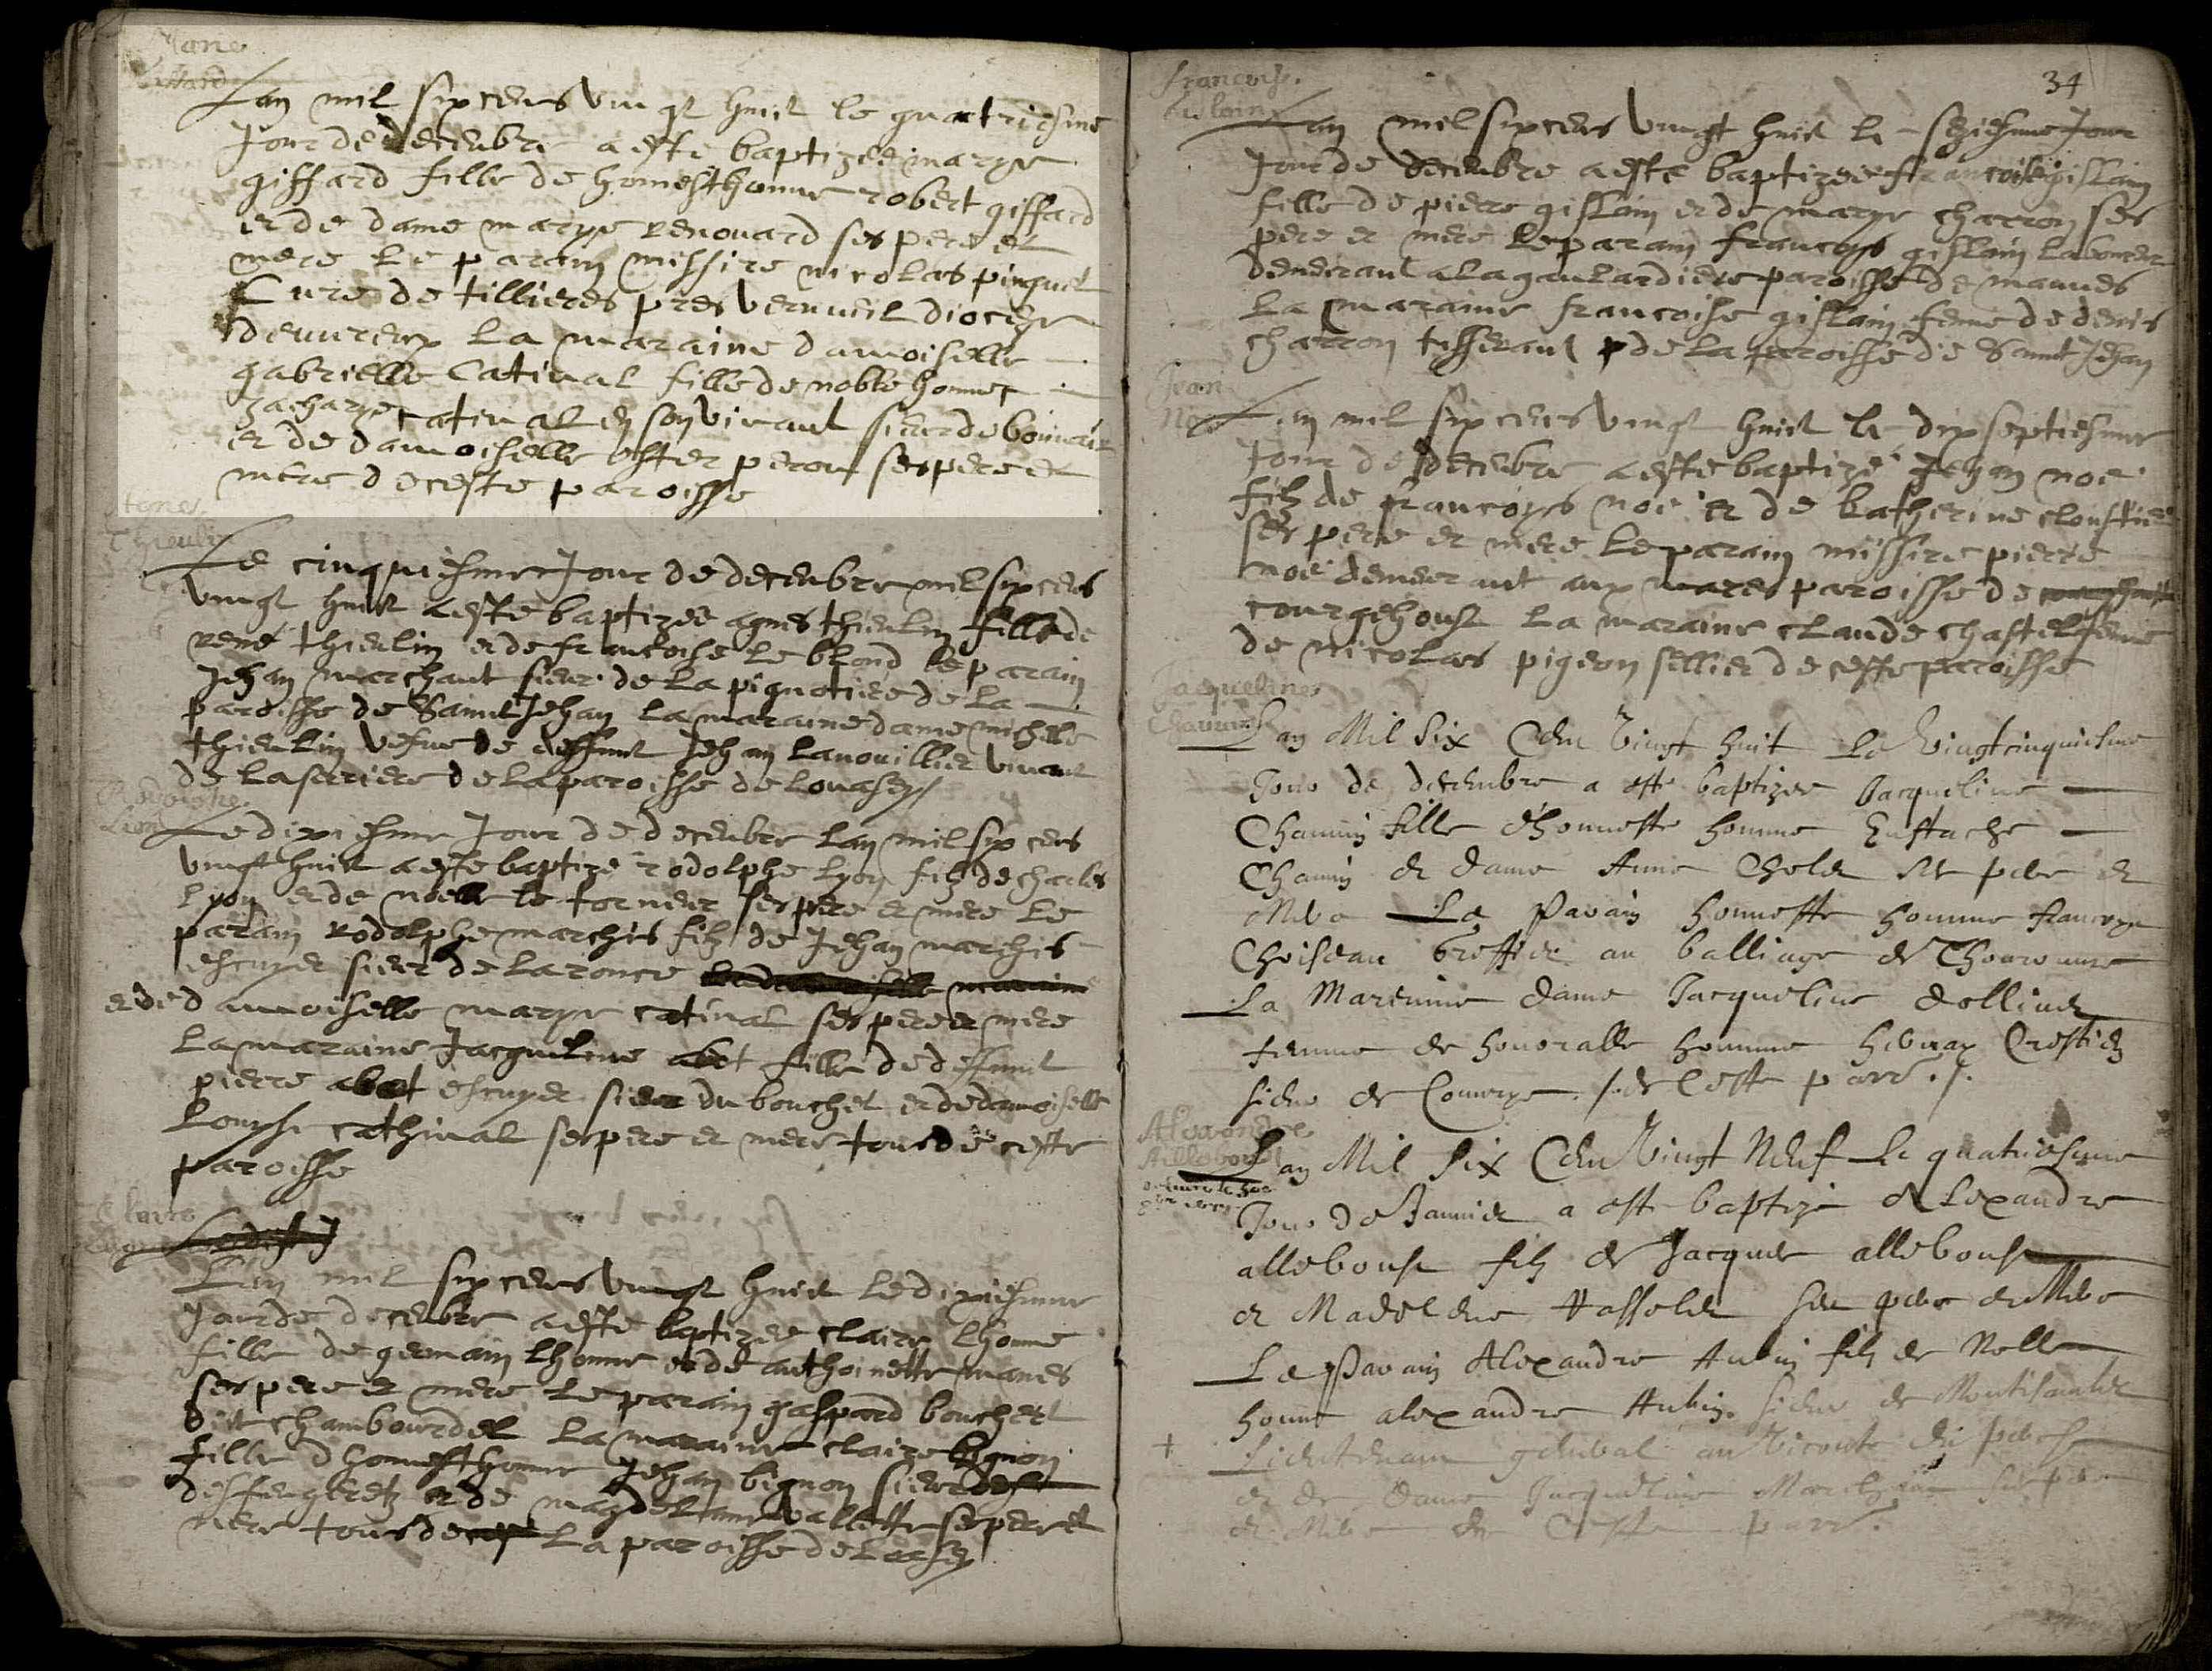 Marie
Giffard
Lan mil six cens vingt huict le quatriesme
Jour de decembre a este baptizee marye
giffard fille de honneste homme robert giffard
et de dame marye renouard ses pere et
mere le parain missire nicolas pinguet
Cure de tillieres pres verneuil diocese
deuureux La maraine damoiselle
gabrielle Catinal fille de noble homme
zacharye catinal en son viuant sieur de bonnair
et de damoiselle ester peron ses pere et
mere de ceste paroisse
Agnes
Thieulin
Le cinquiesme Jour de decembre mil six cens
vingt huict a este baptizee agnes thieulin fille de
rene thieulin et de francoise le blond le parain
Jehan marchant sieur de la pignotiere de la
paroisse de Sainct Jehan la maraine dame michelle
thieulin vefue de deffunct Jehan lanouillier viuant
de la ferriere de la paroisse de louasey
Rodolphe
Lion
Le dixiesme Jour de decembre lan mil six cens
vingt huict a este baptize rodolphe lyon filz de charles
lyon et de noelle le torneur ses pere et mere le
parain rodolphe marchis filz de Jehan marchis
escuyer sieur de la ronce
et de damoiselle marye catinal ses pere et mere
la maraine Jacqueline abot fille de deffunct
pierre abot escuyer sieur du bouchet et de damoiselle
louyse cathinal ses pere et mere tous de ceste
paroisse
Claire
Lan mil six cens vingt huict le dixiesme
Jour de decembre a este baptizee claire lhomme
fille de germain lhomme et de anthoinette manes
ses pere et mere le parain gaspard boucher
dit chambourdel la maraine claire bignon
fille dhonneste homme Jehan bignon sieur
desfeugeretz et de magdelaine vallette ses pere et
mere tous de la paroisse de loisey
34
Francoise
Gislain
Lan mil six cens vingt huict le seziesme Jour
Jour de decembre a este baptizee francoise gislain
fille de pierre gislain et de marye charron ses
pere et mere le parain francoys gislain laboureur
demeurant a la gaulardiere paroisse de mauues
La maraine francoise gislain femme de denis
charron tisserant de la paroisse de Sainct Jehan
Jean
Noe
Lan mil six cens vingt huict le dix septiesme
Jour de decembre a este baptize Jehan noe
filz de francoys noe et de katherine cloustier
ses pere et mere le parain missire pierre
noe demeurant aux mares paroisse de
courgehoust la maraine claude chastel femme
de nicolas pigeon sellier de ceste paroisse
Jacqueline
Chauuin
Lan Mil Six Cens Vingt huit Le Vingt cinquiesme
Jour de decembre a este baptizee Jacqueline
Chauuin fille d'honneste homme Eustache
Chauuin et dame Anne Cholet ses pere et
Mere La Parain honneste homme francoys
Choiseau Greffier au balliage de Thourouure
La Mareinne dame Jacqueline dollines
femme de honorable homme heruay Crestien
sieur de Comeaye de Ceste parr.
Alexandre
Aillebout
Lan Mil Six Cens Vingt Neuf Le quatriesme
Jour de Januier a este baptize Alexandre
alleboust filz de Jacques alleboust
et Madeleine Hasseler ses pere et Mere
Le Parain Alexandre Aubin filz de Noble
homme alexandre Aubin sieur de Montisambert
Lieutenant general au Viconte du perche
et de dame Jacqueline Marchand ses pere
et Mere de Ceste parr.